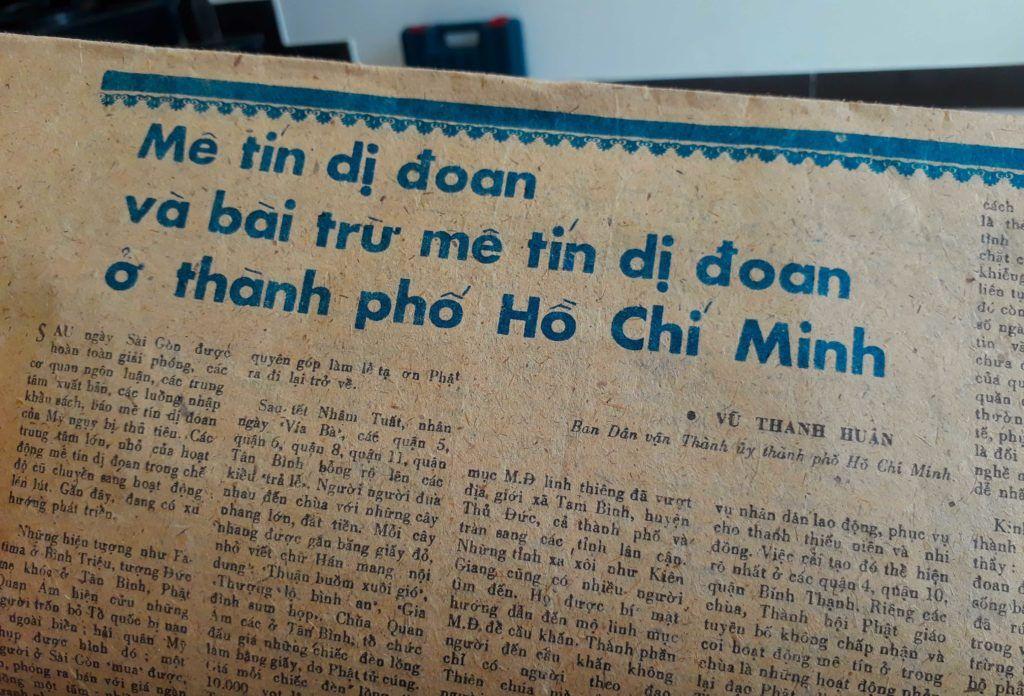 Mê tín dị đoan
và bài trừ mê tín dị đoan
ở thành phố Hồ Chí Minh
• VŨ THANH HUÂN
Ban Dân vận Thành ủy thành phố Hồ Chí Minh
SAU ngày Sài Gòn được
hoàn toàn giải phóng, các
cơ quan ngôn luận, các trung
tâm xuất bản, các luồng nhập
khẩu sách, báo mê tín dị đoan
của Mỹ ngụy bị thủ tiêu. Các
trung tâm lớn, nhỏ của hoạt
động mê tín dị đoan trong chế
độ cũ chuyển sang hoạt động
lén lút. Gần đây, đang có xu
hướng phát triển.
Những hiện tượng như Fa-
tima ở Bình Triệu, tượng Đức
mẹ khóc ở Tân Bình, Phật
Quan Âm hiện cứu những
người trốn bỏ Tổ quốc bị nạn
ngoài biển; hải quân Mỹ
chụp được hình đó, một
người ở Sài Gòn "mua" được,
phóng ra bán với giá ngàn
quyên góp làm lễ tạ ơn Phật
ra đi lại trở về.
Sau tết Nhâm Tuất, nhân
ngày "Vía Bà", các quận 5,
quận 6, quận 8, quận 11, quận
Tân Bình bỗng rộ lên các
kiểu "trả lễ". Người người đua
nhau đến chùa với những cây
nhang lớn, đắt tiền. Mỗi cây
nhang được gắn bằng giấy đỏ,
nhỏ viết chữ Hán mang nội
dung: "Thuận buồm xuôi gió",
"Thượng lộ bình an", "Gia
đình sum họp". Chùa Quan
Âm các ở Tân Bình, tổ chức
đấu giá những chiếc đèn lồng
làm bằng giấy, do Phật tử cúng.
Giá mỗi chiếc đèn lồng
10.000
mục M.Đ linh thiêng đã vượt
địa giới xã Tam Bình, huyện
Thủ Đức, cả thành phố và
tràn sang các tỉnh lân cận.
Những tỉnh xa xôi như Kiên
Giang cũng có nhiều người
tìm đến. Họ được bí mật
hướng dẫn đến mộ linh mục
M.Đ. để cầu khấn. Thành phần
người đến cầu khấn không
chỉ có người theo đạo
Thiên chúa mà
vụ nhân dân lao động, phục vụ
cho thanh thiếu niên và nhi
đồng. Việc cải tạo đó thể hiện
rõ nhất ở các quận 4, quận 10,
quận Bình Thạnh. Riêng các
chùa, Thành hội Phật giáo
tuyên bố không chấp nhận và
coi hoạt động mê tín ở trong
chùa là những hoạt động
lại đạo Phật
cách
là
tính
chất
khiếu
liên tụ
đó còn
số ngà
tin và
chưa
của qu
quần
thườn
tế, phi
là đối
nghề
dễ nhế
Kinh
thành
thấy:
đoan
sống
đã
trừng
bộ